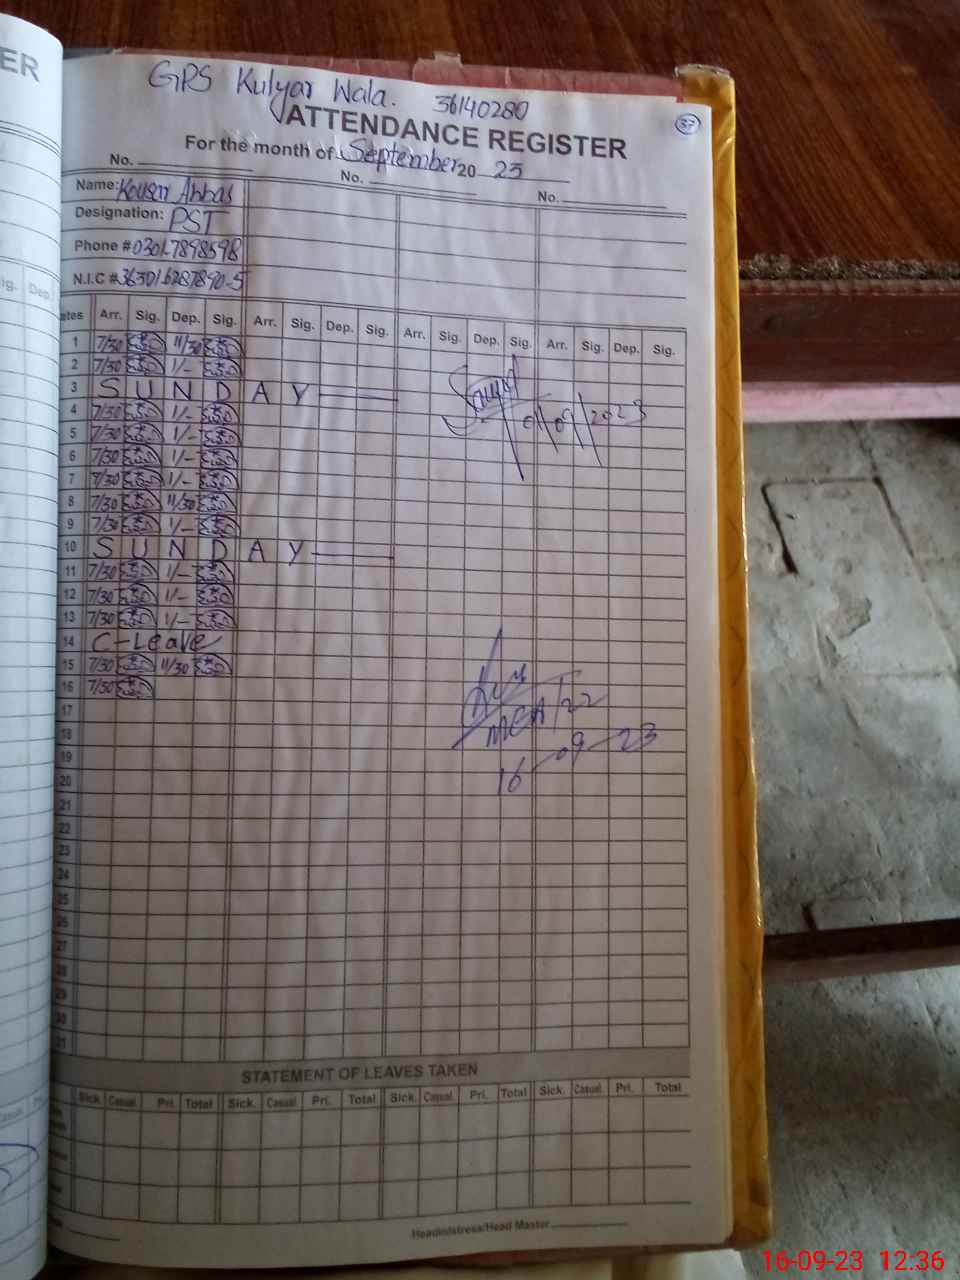 ER
GPS Kulyar Wala. 36140280
ATTENDANCE REGISTER
37
For the month of September 20 23
No. No. No.
Name: Kousar Abbas
Designation: PST
Phone # 0301-7898598
N.I.C # 36301-6287890-5
ig. Dep.
ates Arr. Sig. Dep. Sig. Arr. Sig. Dep. Sig. Arr. Sig. Dep. Sig. Arr. Sig. Dep. Sig.
1 7/30 11/30
2 7/30 1/-
3 SUNDAY
4 7/30 1/-
01/09/2023
5 7/30 1/-
6 7/30 1/-
7 7/30 1/-
8 7/30 11/30
9 7/30 1/-
10 SUNDAY
11 7/30 1/-
12 7/30 1/-
13 7/30 1/-
14 C-Leave
15 7/30 11/30
16 7/30
17
MEA
18
16-09-23
19
20
21
22
23
24
25
26
27
28
29
30
31
STATEMENT OF LEAVES TAKEN
Sick. Casual. Pri. Total Sick. Casual. Pri. Total Sick. Casual. Pri. Total Sick. Casual. Pri. Total
Headmistress/Head Master
16-09-23 12:36